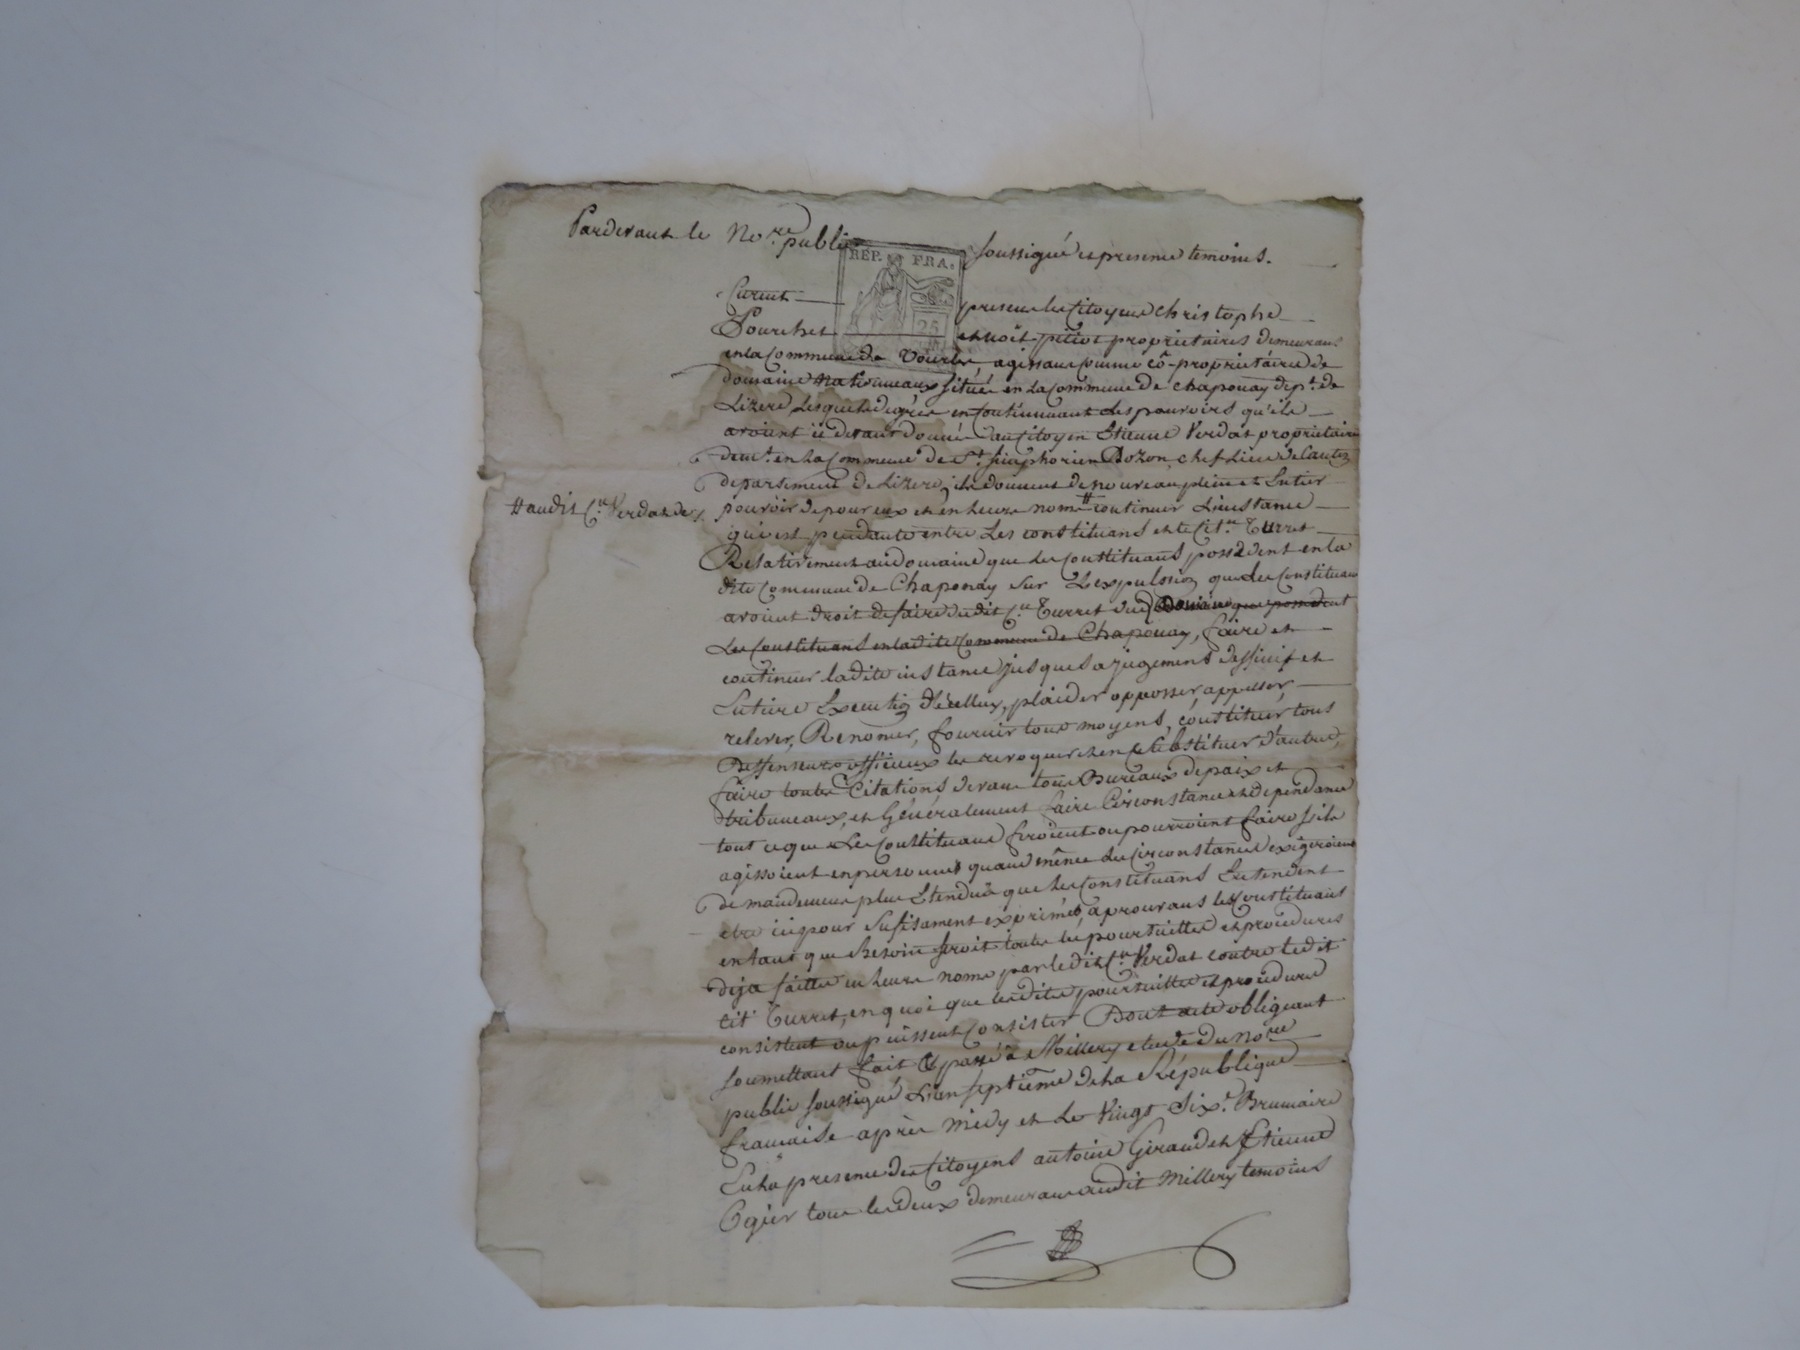 Pardevant le No.re public soussigné et presens temoins.
REP. FRA.
25
Curent presens les Citoyens Christophe
Pourchet et noït pitiot proprietaires demeurans
en la Commune de Vourles, agissans comme cô-proprietaire de
domaine nationneaux située en la commune de chaponay dep.t de
Lizere Lesquels de grés en Continuant les pouvoirs qu'ils
avoient ci devant donnés au Citoyen Etienne Verdat proprietaire
dem.t en la Commune de S.t Simphorien Dozon chef Lieu de Canton
departement de Lizere, ils donnent de nouveau plein et Entier
# audit C.n Verdat de
pouvoir de pour eux et en heurs noms # continuer Linstance
qui est pendante entre Les constituans et le Cit.en Turret
Relativement au domaine que les Constituans possedent en la
dite Commune de Chaponay sur Lexpulsion que les Constituans
avoient droit de faire du dit C.n Turret du Domaine que possedent
Les Constituans en ladite Commune de Chaponay, faire et
continuer ladite instance jusques a jugement deffinif et
Entiere Execution d'icelluy, plaider opposser, appeller,
relever, Renoncer, fournir tous moyens, constituer tous
Deffenseurs officieux les revoquer et en substituer d'autres,
faire toutes Citations devant tous Bureaux de paix et
tribuneaux, et Généralement faire Circonstance et dependance
tout ce que Les Constituans feroient ou pourroient faire s'ils
agissoient en personnes quand même les Circonstances exigeroient
de mandement plus Etendus que les Constituans Entendent
etre ici pour sufisament exprimés, aprouvans les Constituans
en tant que Besoin seroit toutes les poursuittes et procedures
deja faittes en heurs noms par ledit C.n Verdat contre ledit
cit Turret, en quoi que lesdites poursuittes et procedure
consistent ou puissent Consister Dont acte obligeant
soumettant fait et passé à Millery etude du No.re
public soussigné L'an septiême de la Republique
francaise après midy et le Vingt Six.e Brumaire
En la presence des Citoyens antoine Giraud et Etienne
Ogier tous les deux demeurans audit Millery temoins